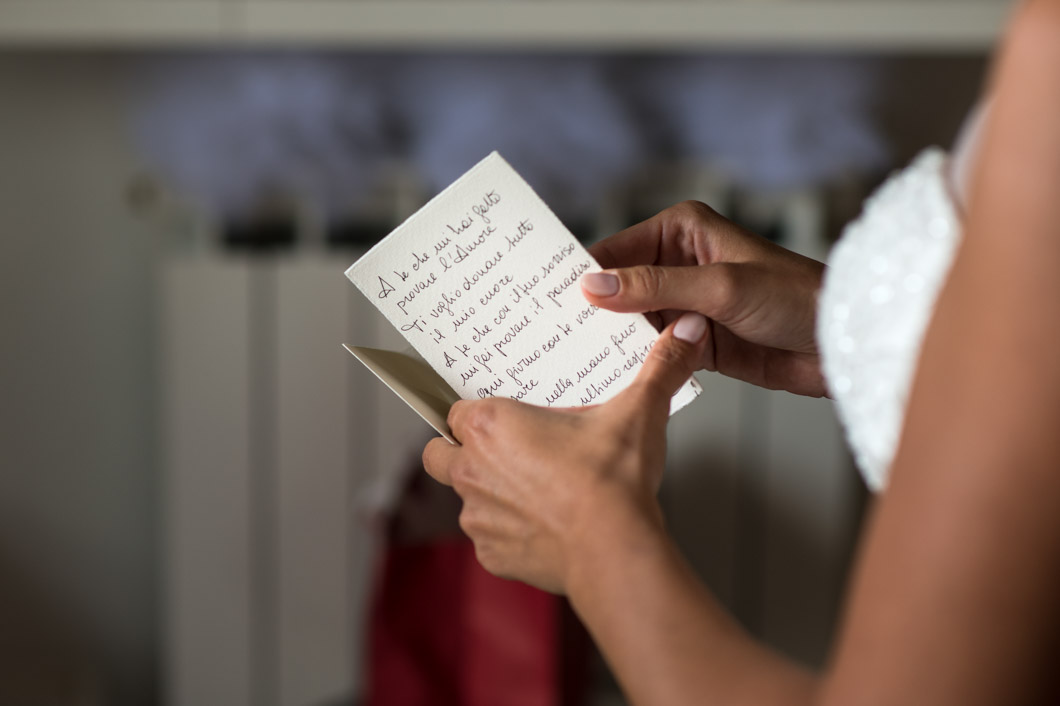 A te che mi hai fatto
provare l'Amore
Ti voglio donare tutto
il mio cuore
A te che con il tuo sorriso
mi fai provare il paradiso
ogni giorno con te
nella mano fino
ultimo respiro